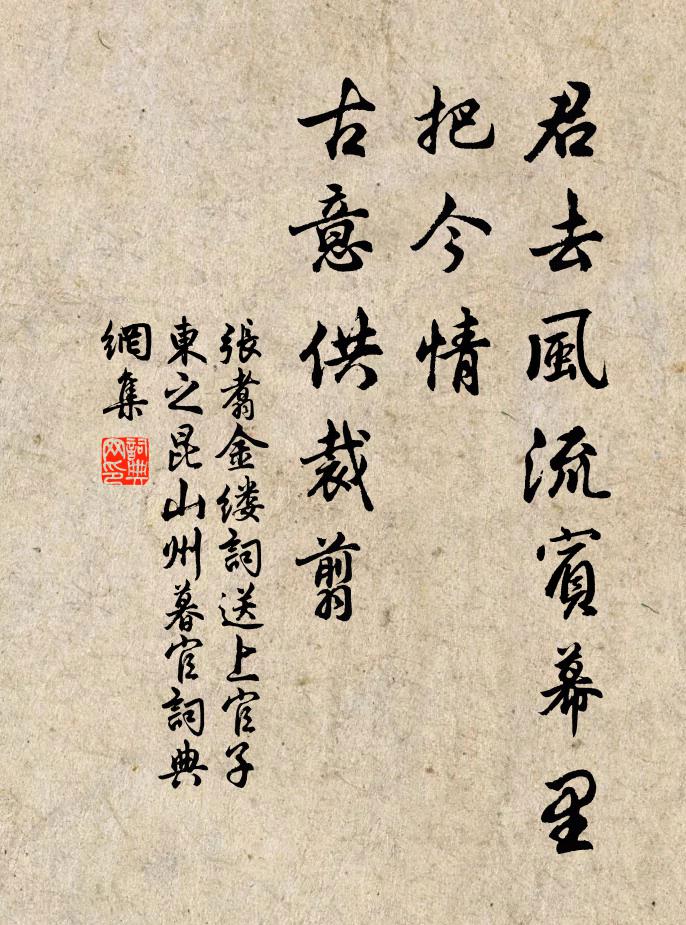 君去風流賓幕里
把今情
古意供裁翦
張翥金缕詞送上官子
東之昆山州暮官詞典
網集
詞典
网印